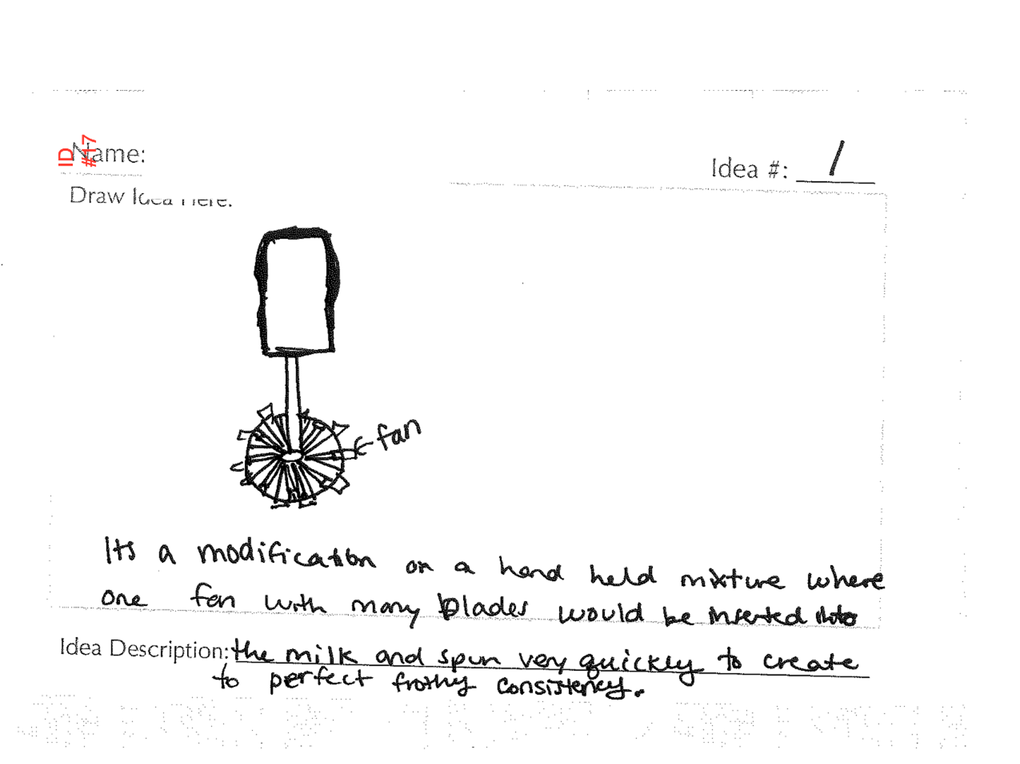 ID #17
Name:
Idea #: 1
Draw Idea Here:
fan
Its a modification on a hand held mixture where
one fan with many blades would be inserted into
Idea Description: the milk and spun very quickly to create
to perfect frothy consistency.